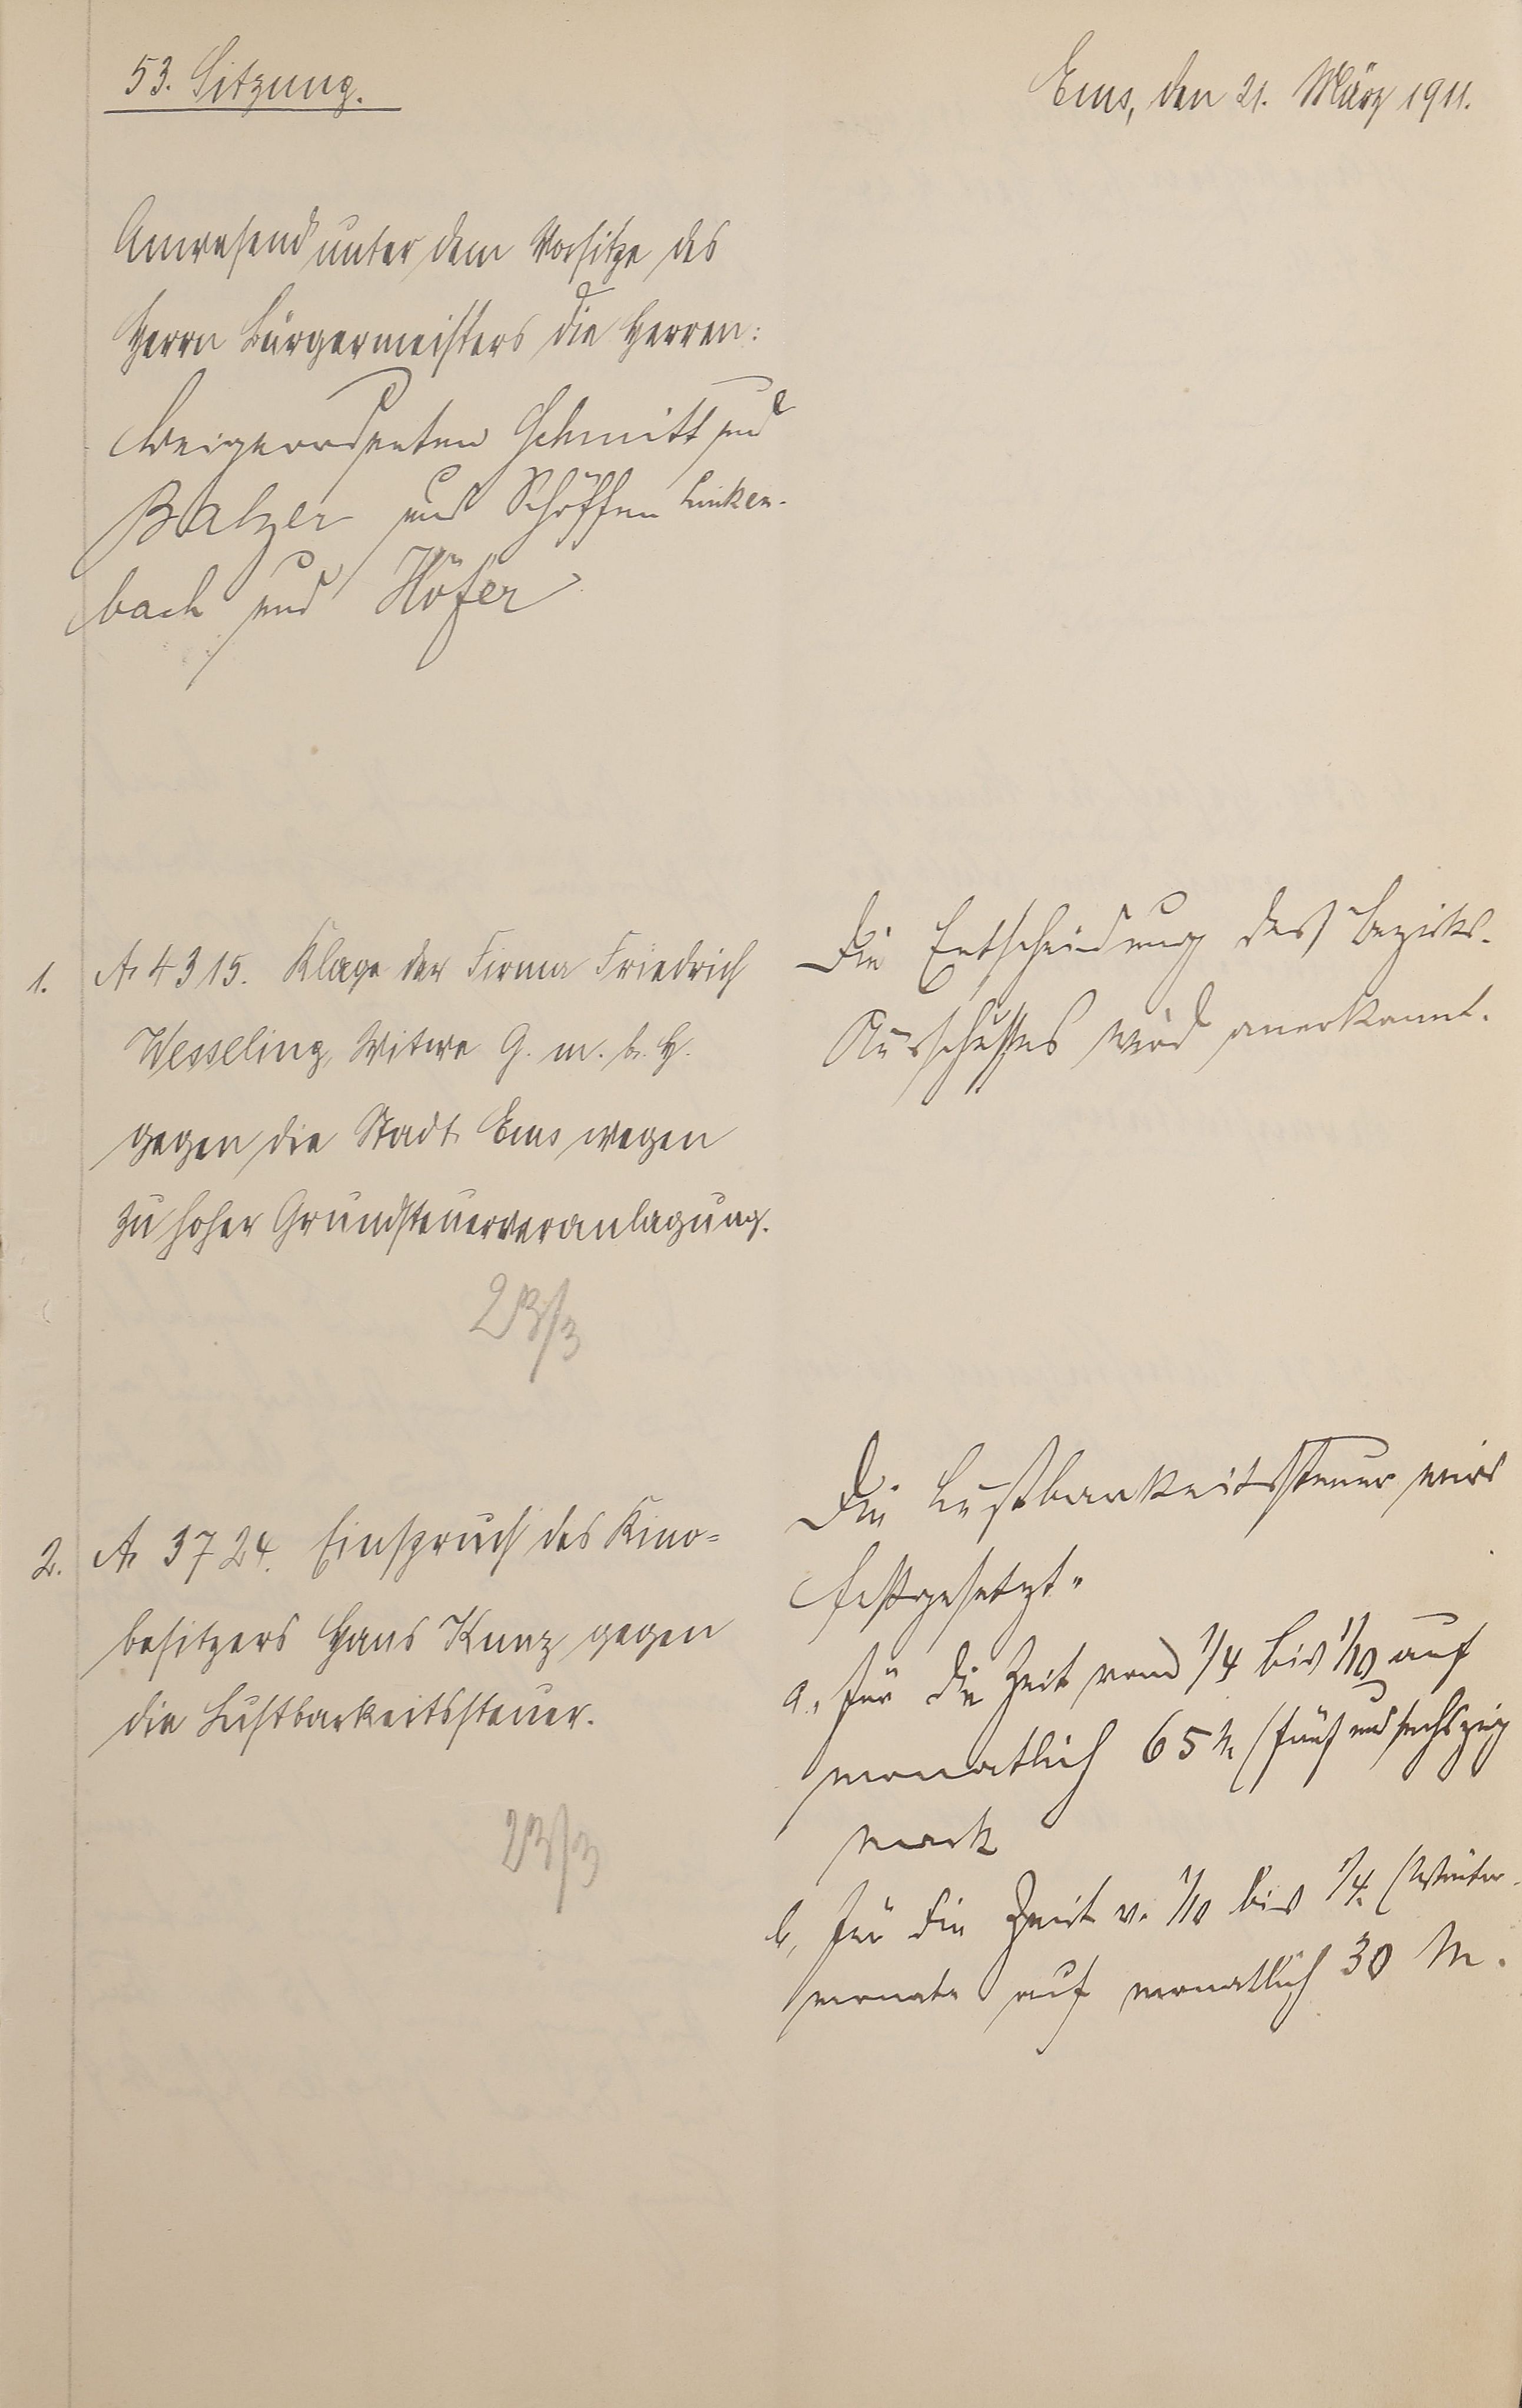 53. Sitzung.
Ems, den 21. März 1911.
Anwesend unter dem Vorsitze des
Herrn Bürgermeisters die Herren:
Beigeordneten Schmitt und
Balzer und Schöffen Linken-
bach und Höfer
1. A 4315. Klage der Firma Friedrich
Wesseling, Witwe G. m. b. H.
gegen die Stadt Ems wegen
zu hoher Grundsteuerveranlagung.
23/3
Die Entscheidung des Bezirks-
Ausschusses wird anerkannt.
2. A 3724. Einspruch des Kino=
besitzers Hans Kunz gegen
die Lustbarkeitssteuer.
23/3
Die Lustbarkeitssteuer wird
festgesetzt"
a., für die Zeit vom 1/4 bis 1/10 auf
monatlich 65 M (fünf und sechszig
Mark
b, für die Zeit v. 1/10 bis 1/4. (Winter-
monate auf monatlich 30 M.